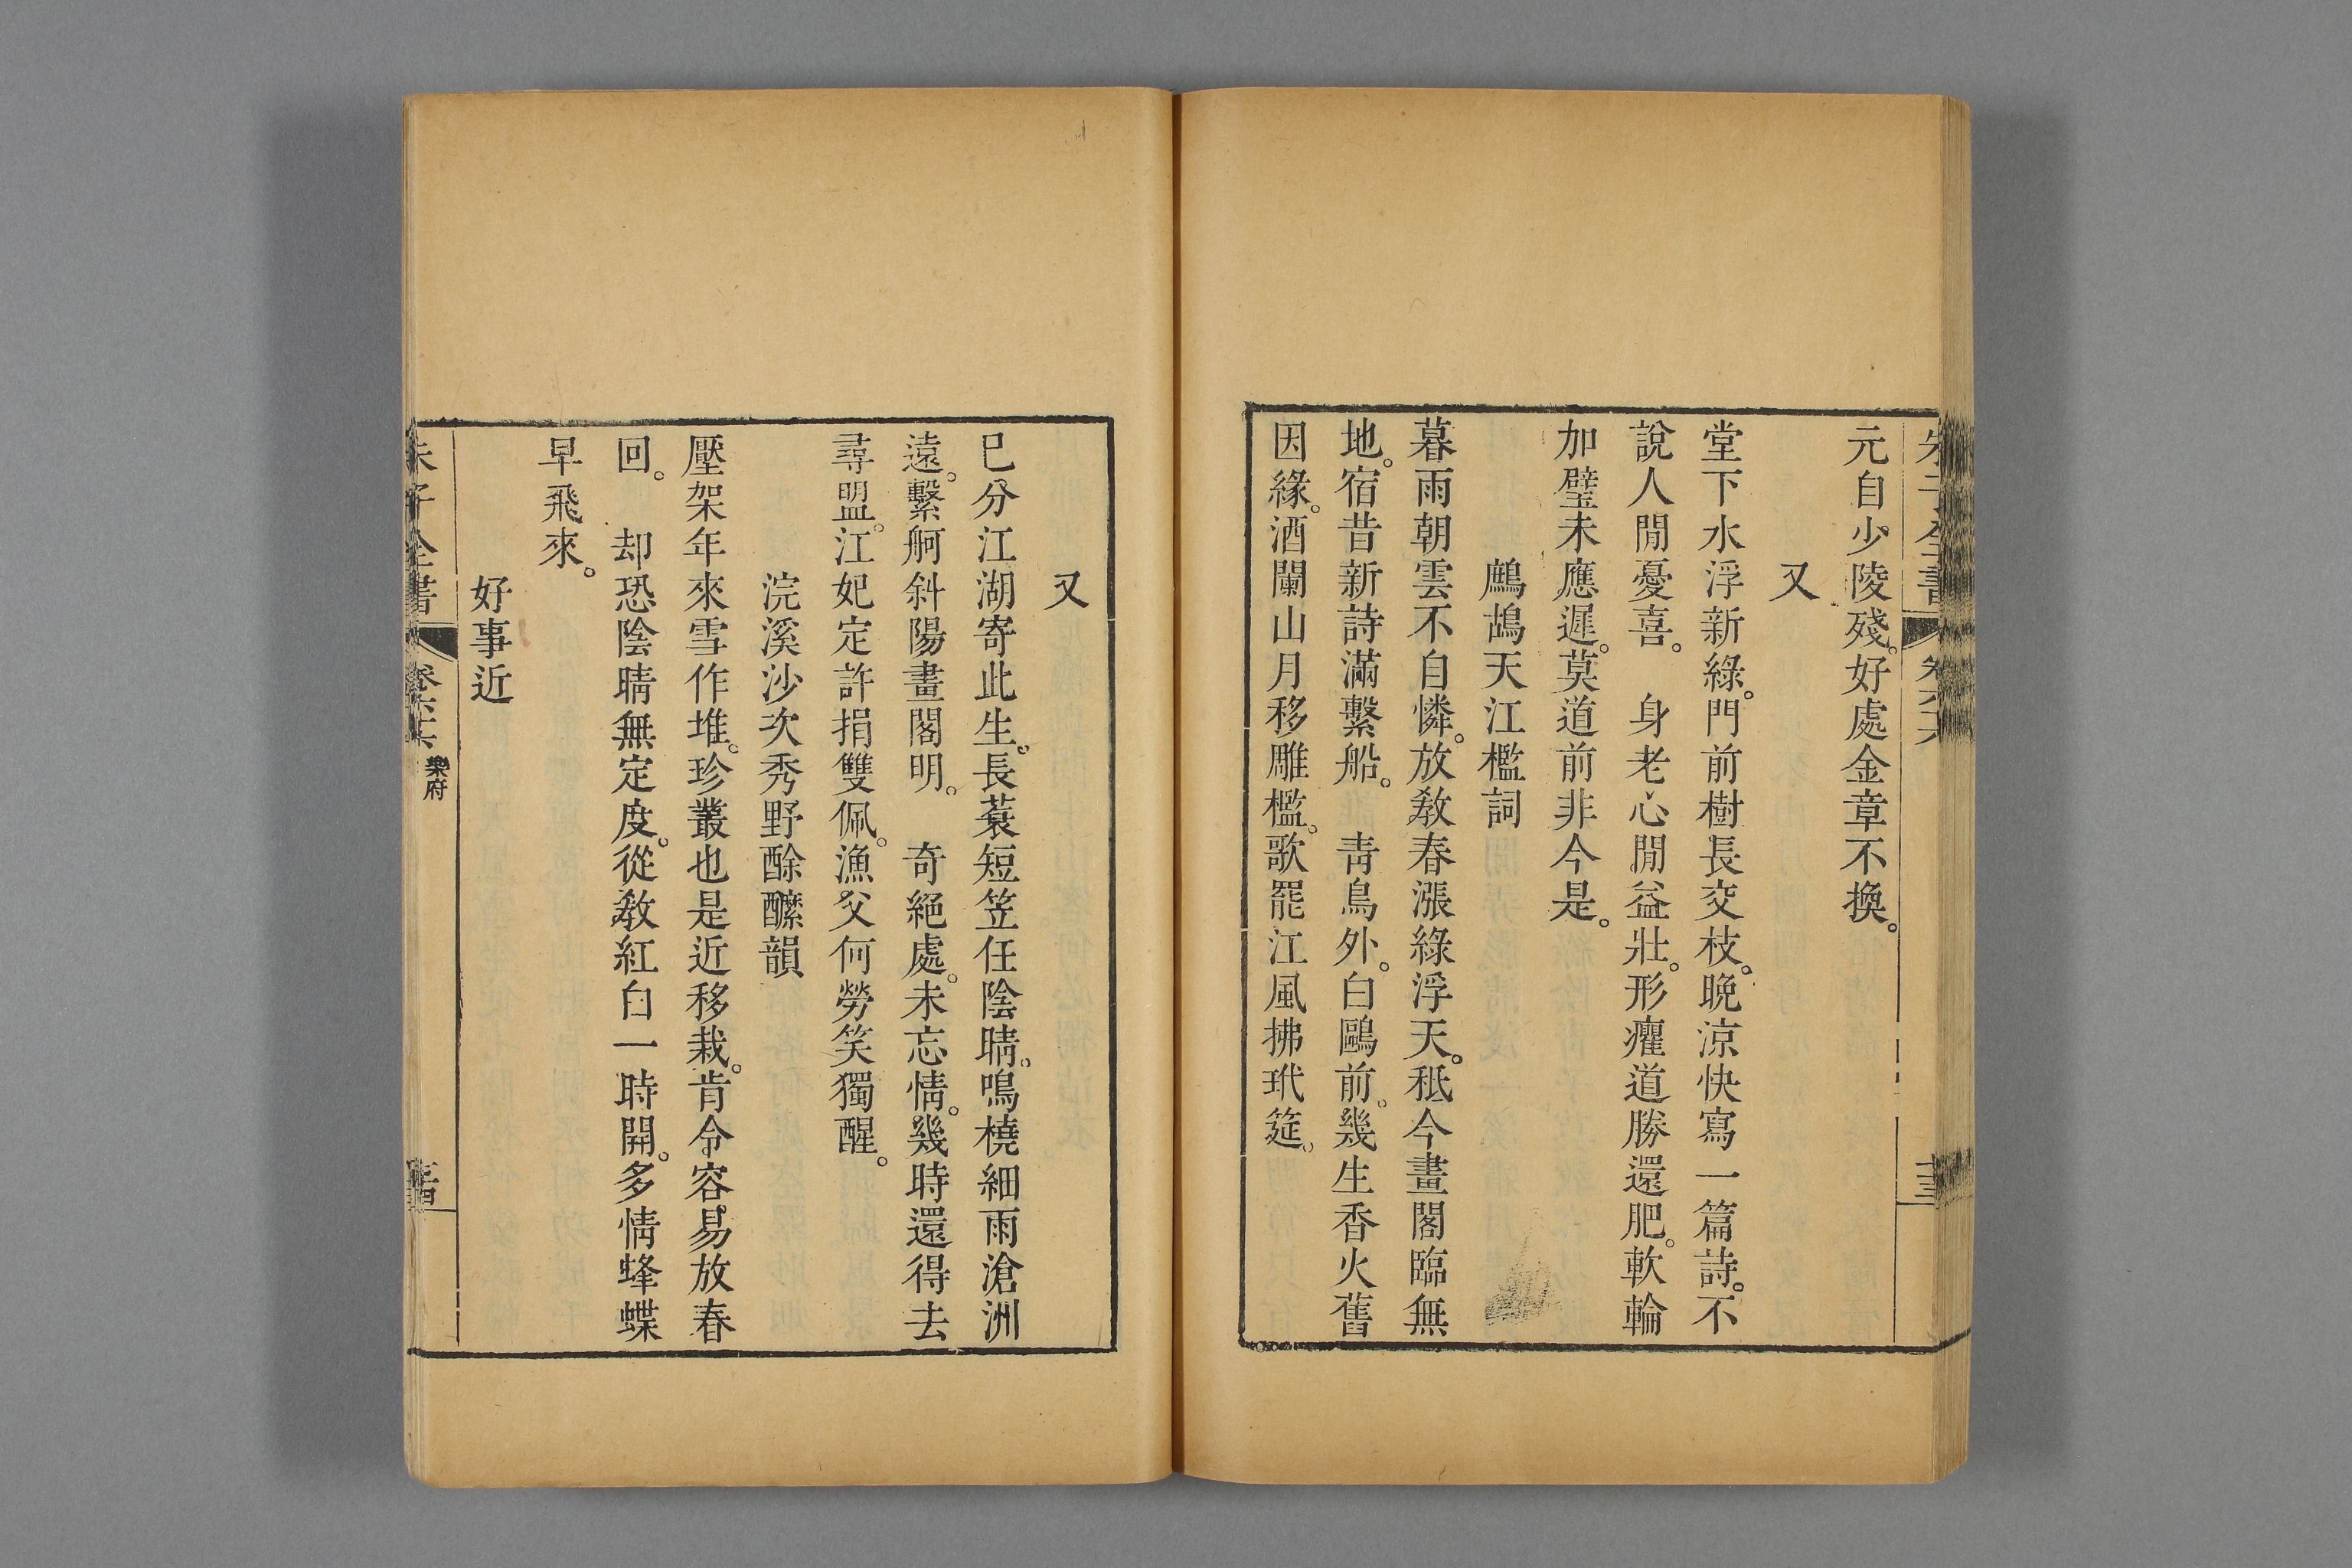 元自少陵殘。好處金章不換。
又
堂下水浮新綠。門前樹長交枝。晚涼快寫一篇詩。不
說人閒憂喜。　身老心閒益壯。形癯道勝還肥。軟輪
加璧未應遲。莫道前非今是。
鷓鴣天江檻詞
暮雨朝雲不自憐。放敎春漲綠浮天。秪今畫閣臨無
地。宿昔新詩滿繫船。　靑鳥外。白鷗前。幾生香火舊
因緣。酒闌山月移雕檻。歌罷江風拂玳筵。
又
巳分江湖寄此生。長蓑短笠任陰晴。鳴橈細雨滄洲
遠。繫舸斜陽畫閣明。　奇絕處。未忘情。幾時還得去
尋盟。江妃定許捐雙佩。漁父何勞笑獨醒。
浣溪沙次秀野酴醾韻
壓架年來雪作堆。珍叢也是近移栽。肯令容易放春
回。　却恐陰晴無定度。從敎紅白一時開。多情蜂蝶
早飛來。
好事近
朱子全書
樂府